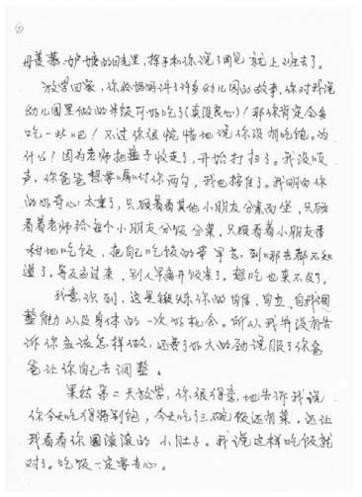 母羡慕、妒嫉的目光里,挥手和你说了再见就上班去了。
放学回家,你给妈妈讲了许多幼儿园的故事,你对我说
幼儿园里做的饭好吃了(真没良心)!那你肯定会多
吃一些吧!不过你很惋惜地说你没有吃饱。为
什么?因为老师把盘子收走了,开始打扫了。我没吱
声,你爸爸想要嘱咐你两句,我也拦住了。我明白你
的好奇心太重了,只顾着看其他小朋友分桌而坐,只顾
看着老师给每个小朋友分饭分菜,只顾看着小朋友香
甜地吃饭,把自己吃饭的事早忘到哪去都不知
道了。等反应过来,别人早离开饭桌了。想吃也来不及了。
我意识到,这是锻炼你的自律、自立、自我调
整能力以及身体的一次好机会。所以我并没有告
诉你应该怎样做,还费了好大的劲说服了你爸
爸让你自己去调整。
果然第二天放学,你很得意地告诉我说
你今天吃得特别饱,今天吃了三碗饭还有菜。还让
我看看你圆滚滚的小肚子。我说这样吃饭就
对了。吃饭一定要专心。